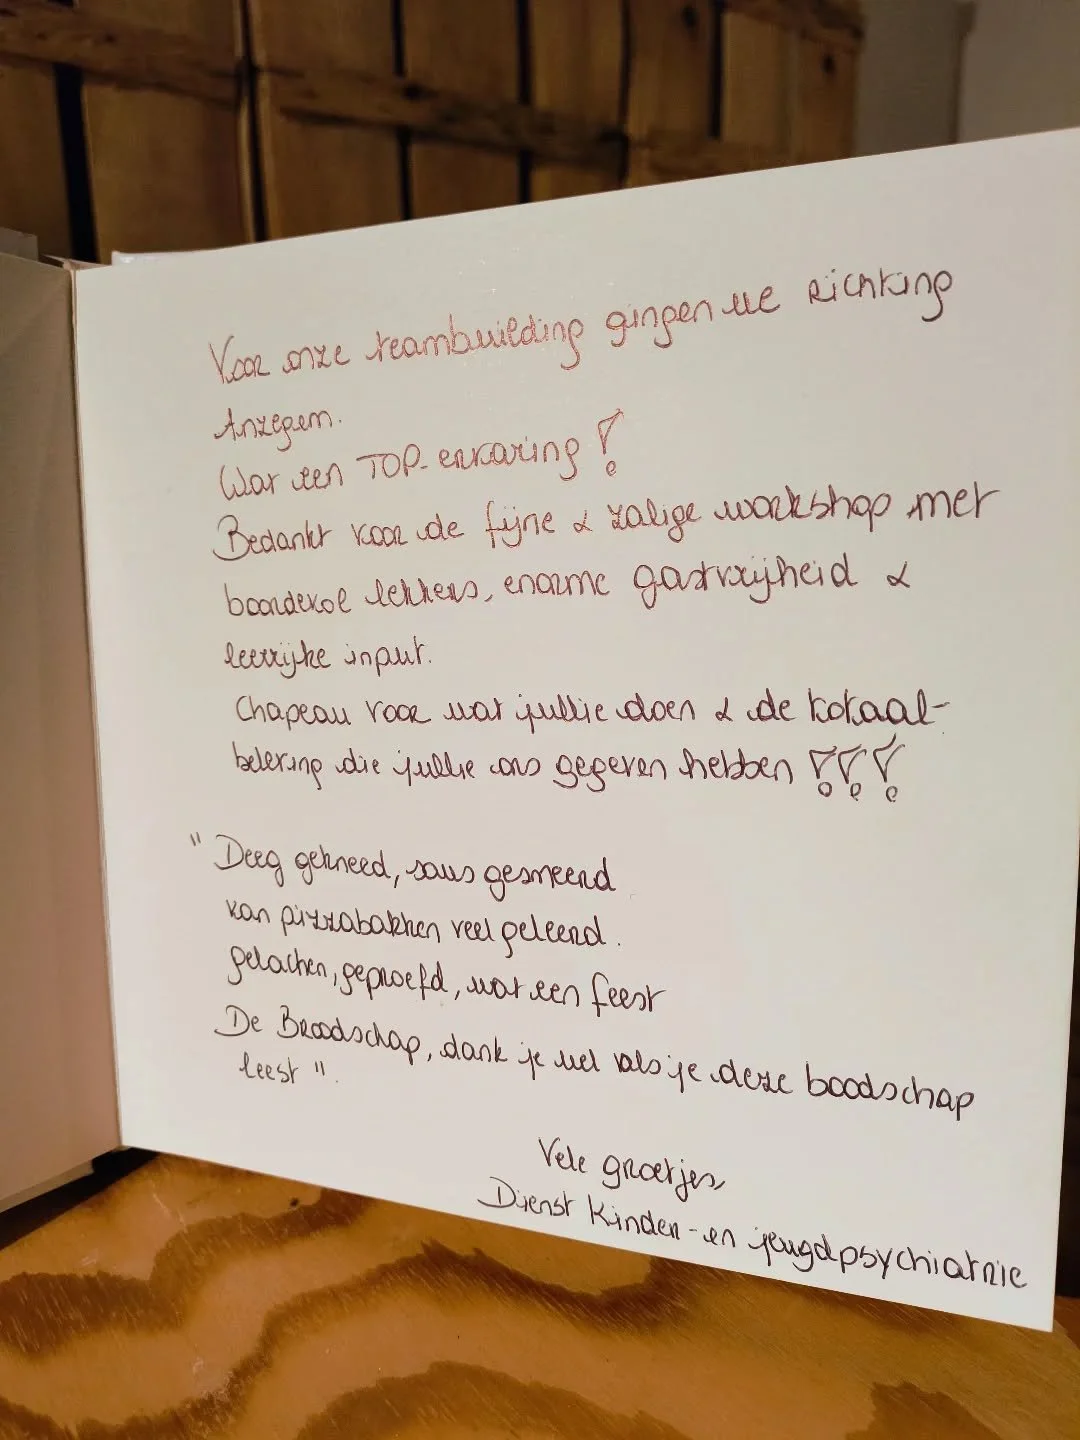 Voor onze teambuilding gingen we richting
Anzegem.
Wat een TOP-ervaring !
Bedankt voor de fijne & zalige workshop met
boordevol lekkers, enorme gastvrijheid &
leerrijke input.
Chapeau voor wat jullie doen & de totaal-
beleving die jullie ons gegeven hebben !!!
"Deeg gekneed, saus gesmeerd
van pizzabakken veel geleerd.
gelachen, geproefd, wat een feest
De Broodschap, dank je wel als je deze boodschap
leest".
Vele groetjes,
Dienst Kinder-en jeugdpsychiatrie